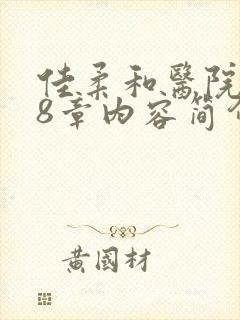 佳柔和醫院
8章内容简介
黄國材